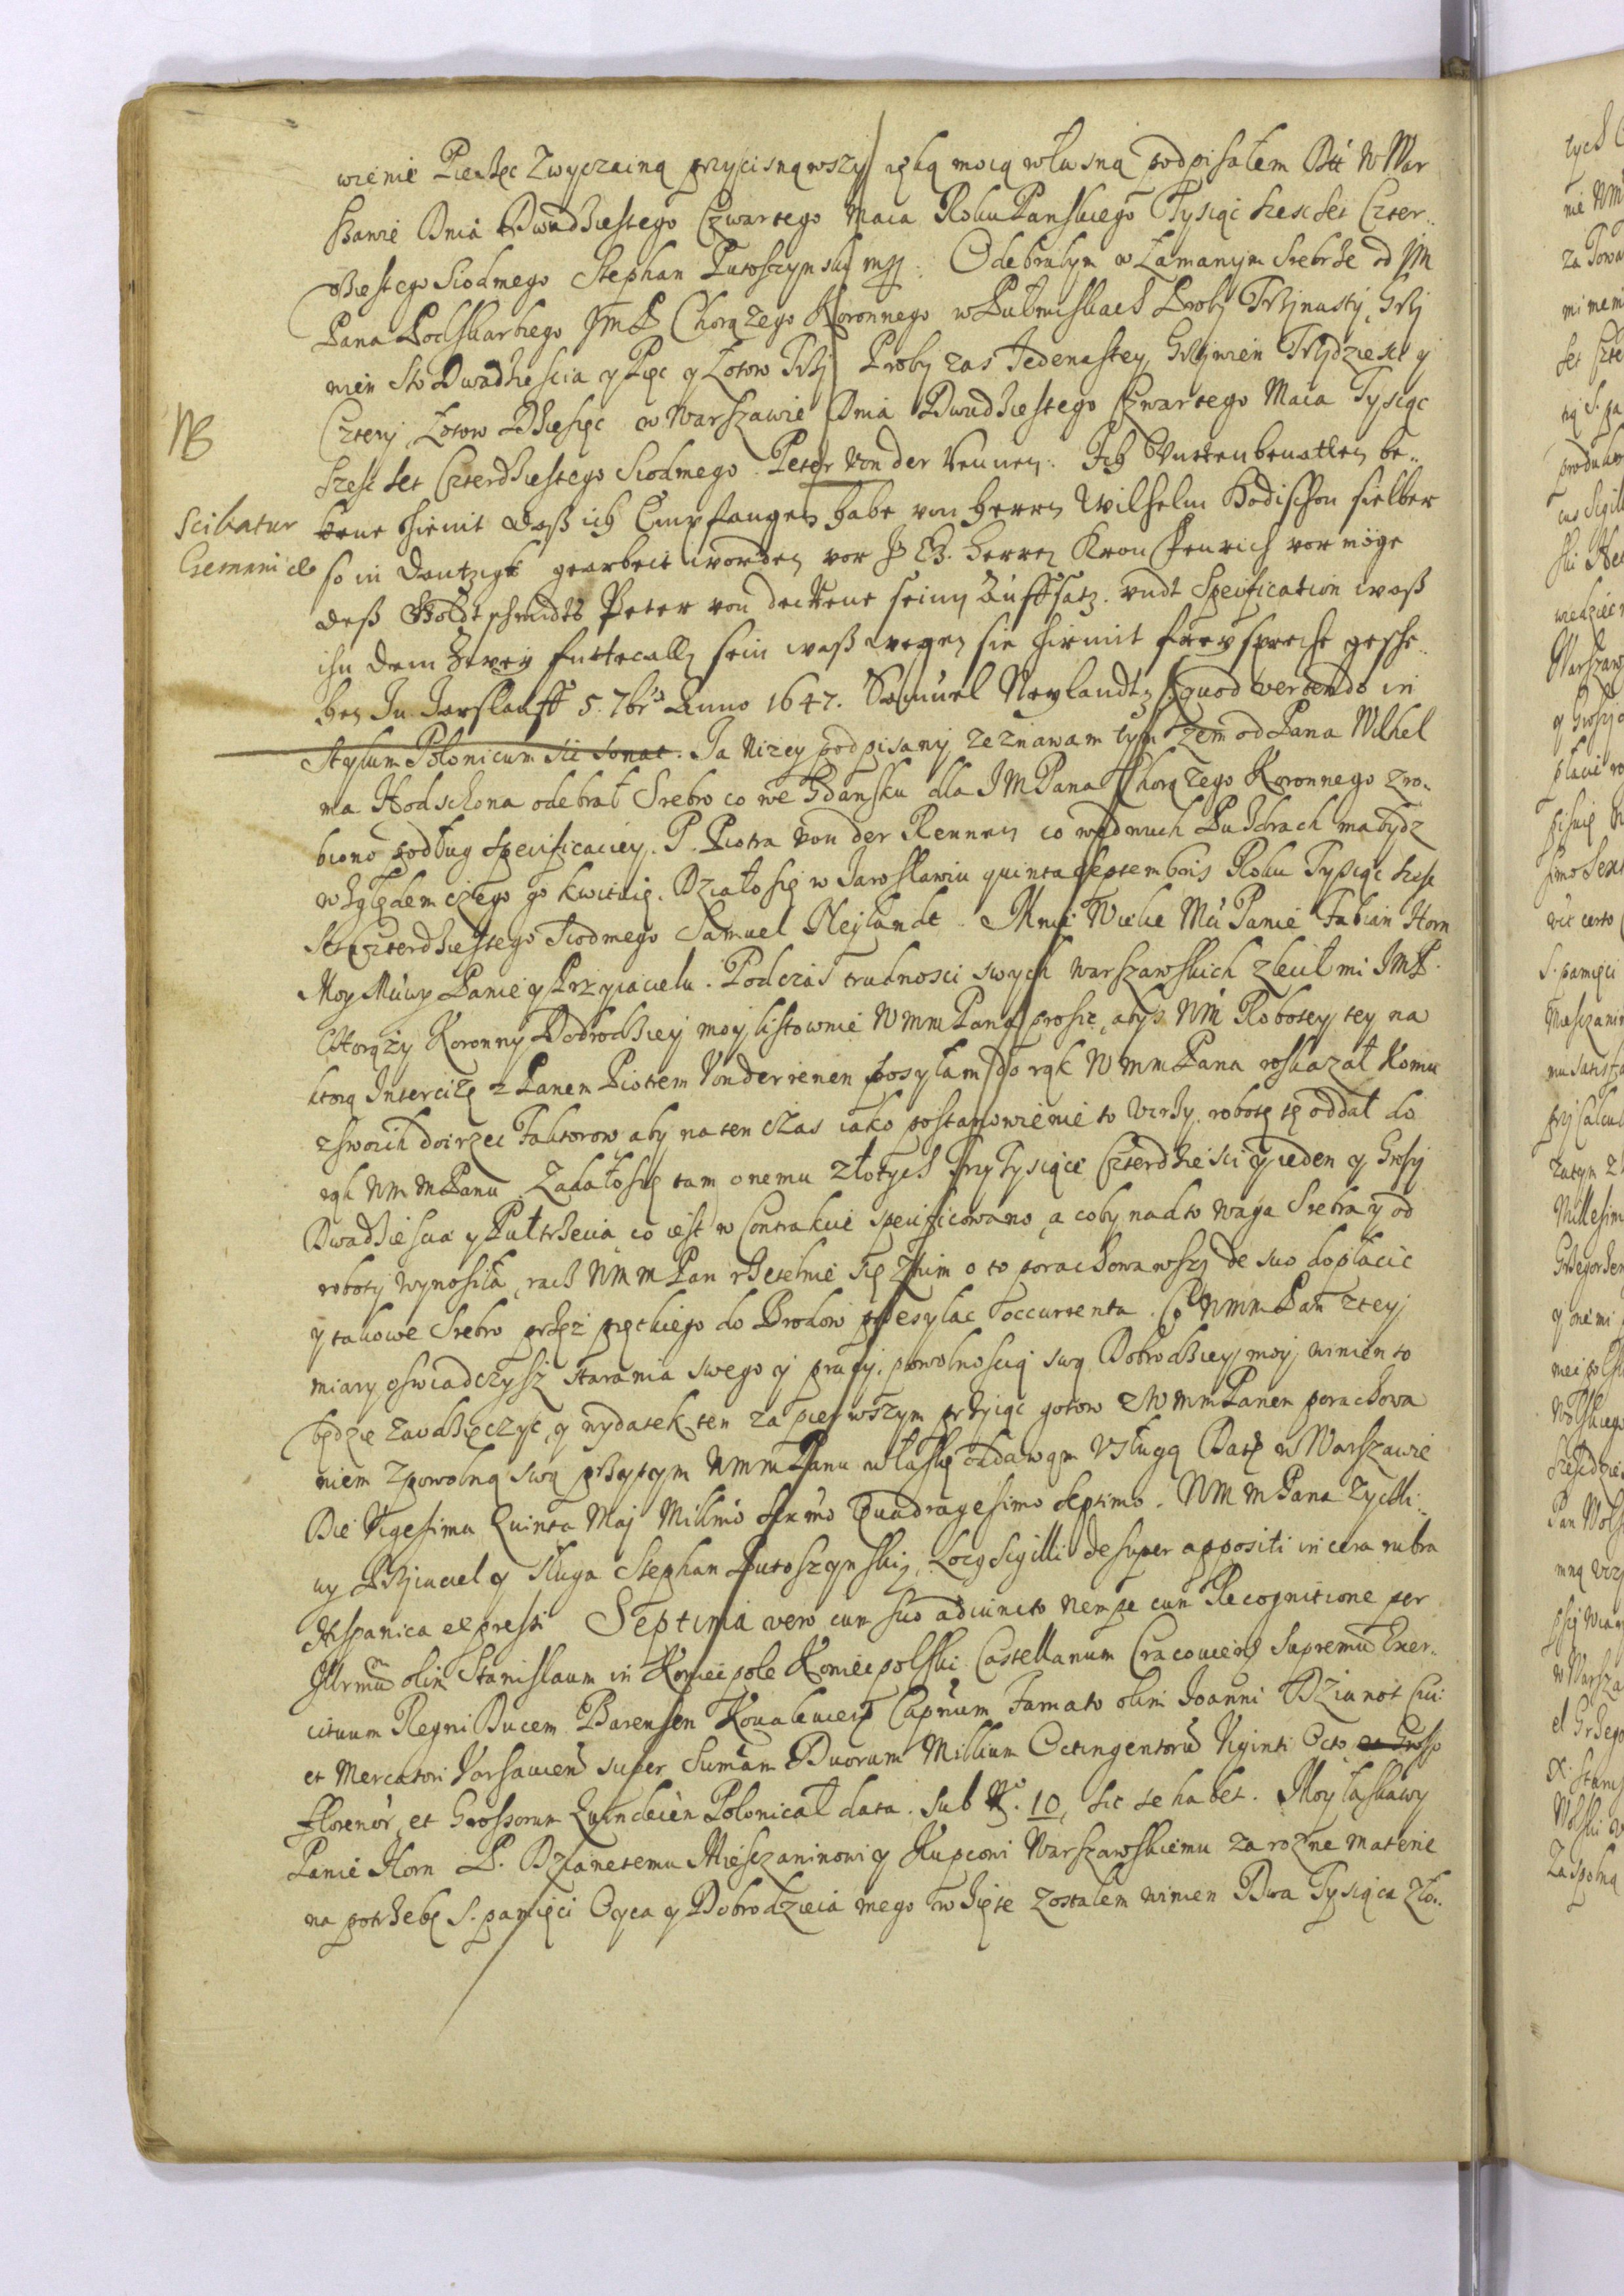 wienie Pieczęc Zwyczaina przycisnąwszy ręką moią własną podpisałem Dtt W War
szawie Dnia Dwudziestego Czwartego Maia Roku Panskiego Tysiąc szescset Czter..
dziestego Siodmego Stephan Lutoszynsky mpp. Odebrałym w Łamanym Srebrze od JM
Pana Podskarbiego JmP Chorązego Koronnego w Półmiskach Proby Trzynasty, Grzy
wien Sto Dwadziescia y Pięc y Łotow Trzy Proby zas Jedenastey, Grzywien Trzydziesci y
Cztery Łotow Dziesięc w Warszawie Dnia Dwudziestego Czwartego Maia Tysiąc
NB
szesc set Czterdziestego Siodmego. Peter Von der Rennen. Ich Unttenbenatten be..
Scribatur
kene hirmit daß ich Empfangen habe von Herren Wilhelm Hodischon sielber
Germanice
so in Dantzigk gearbeit worden vor J Herren Kron Fenrich vor möge
deß Goldtschmidts Peter von der Rene seiny Auffsatz. undt Specification waß
ihn dem Zwey futterally sein waß wegen sie hirmit frey spreche gesche..
hen In Jarslauff 5. 7bris Anno 1647. Samuel Neylandt quod vertendo in
Stylum Polonicum sic sonat. Ja Nizey podpisany zeznawam tym zem od Pana Wilhel
ma Hodschona odebrał Srebro co we Gdansku dla JMPana Chorązego Koronnego zro..
biono podług specificaciey P. Piotra Von der Rennen co we dwuch Puzdrach ma bydz
względem czego go kwituię. Działo się w Jarosławiu quinta Septembris Roku Tysiąc szesc
set Czterdziestego Siodmego Samuel Neylandt. Mnie Wielce Mći Panie Fabian Horn
Moy Mćiwy Panie y Przyiacielu. Podczas trudnosci swych Warszawskich zlecił mi JMP.
Chorązy Koronny Dobrodziey moy listownie WmmPana prosic, abys WM Robotey tey na
ktorą Intercizę z Panem Piotrem Vonderrenen posyłam do rąk WmmPana roskazał komu
z swoich doirzec Faktorow aby na ten czas iako postanowienie to Wrzy. robotę tę oddał do
rąk WmmPanu. Zadało się tam onemu złotych Trzy Tysiące Czterdziesci y ieden y Groszy
Dwadziescia y Pułtrzecia co iest w Contrakcie specificowano, a coby nadto Waga Srebra y od
roboty wynosiła, racz WmmPan rzetelnie się z nim o to porachowawszy de suo dopłacic
y takowe Srebro przez prętkiego do Brodow przesyłac occurrenta. Co WmmPan z tey
miary oswiadczysz starania swego y pracy, powolnoscią swą Dobrodziey moy, winien to
będzie zawdzięczyc, y wydatek ten za pierwszym przyiąc gotow z WmmPanem porachowa
niem z powolną swą przytym WmmPanu w łaskę oddawam Usługą Datę w Warszawie
Die Vigesima Quinta Maj Millmo sexmo Quadragesimo septimo. WmmPana Zyczli..
wy Przyiaciel y sługa Stephan Lutoszynsky, Locq Sigilli desuper appositi in cera rubra
Hispanica expressi Septima vero cum suo adiuncto nempe cum Recognitione per
Illrmum olim Stanislaum in Koniecpole Koniecpolski Castellanum Cracovien Supremum Exer..
cituum Regni Ducem Barensem Kovaleviens Capneum Famato olim Joanni Dzianot Civi
et Mercatori Varsaviens super Summam Duorum Millium Octingentorum Viginti Octo et Grosso
Florenor, et Grossorum Quindecim Polonical data. Sub No. 10, sic se habet. Moy łaskawy
Panie Horn P. Dzianetemu Miesczaninowi y Kupcowi Warszawskiemu za rozne materie
na potrzebę S. pamięci Oyca y Dobrodzieia mego wzięte zostałem winien Dwa Tysiąca Zło..